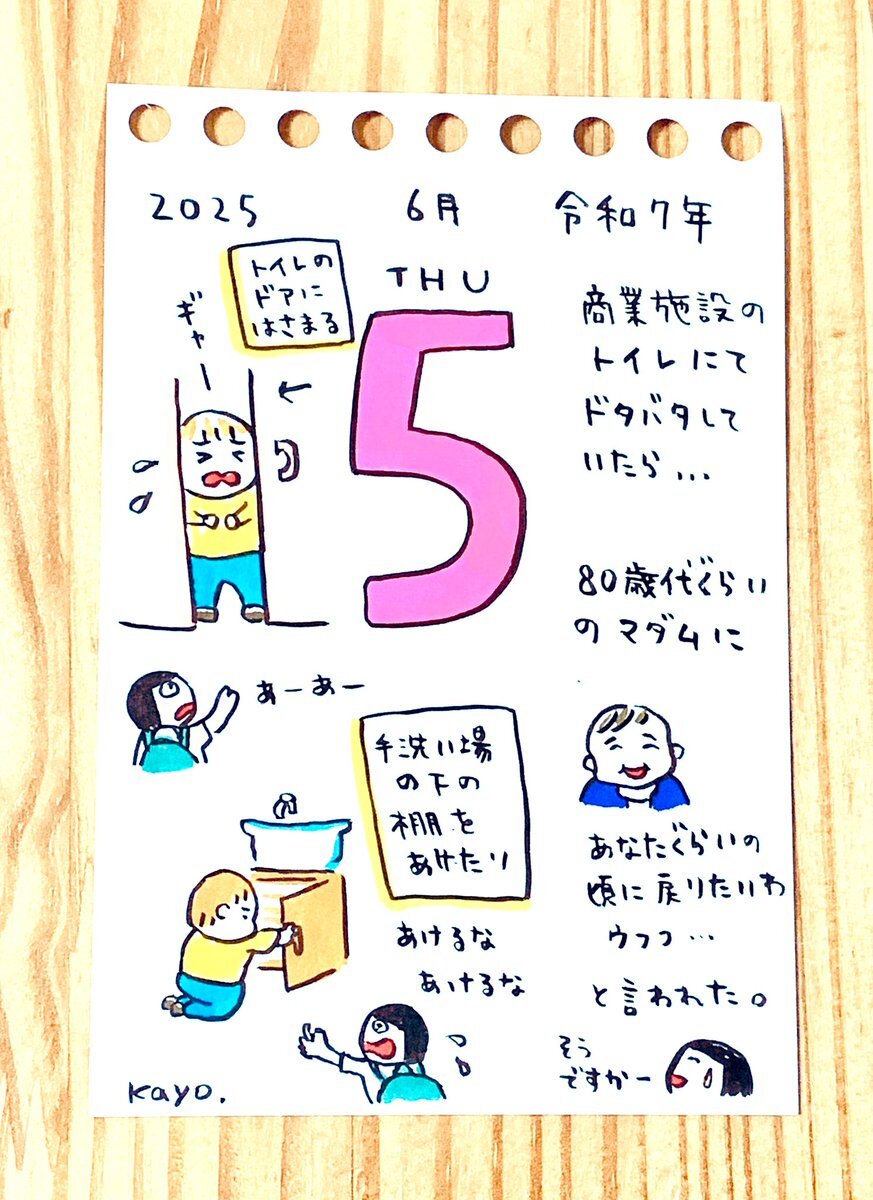 2025
6月
令和7年
THU
5
トイレの
ドアに
はさまる
ギャー
あーあー
手洗い場
の下の
棚を
あけたり
あけるな
あけるな
商業施設の
トイレにて
ドタバタして
いたら...
80歳代ぐらい
のマダムに
あなたぐらいの
頃に戻りたいわ
ウフフ…
と言われた。
そう
ですかー
kayo.